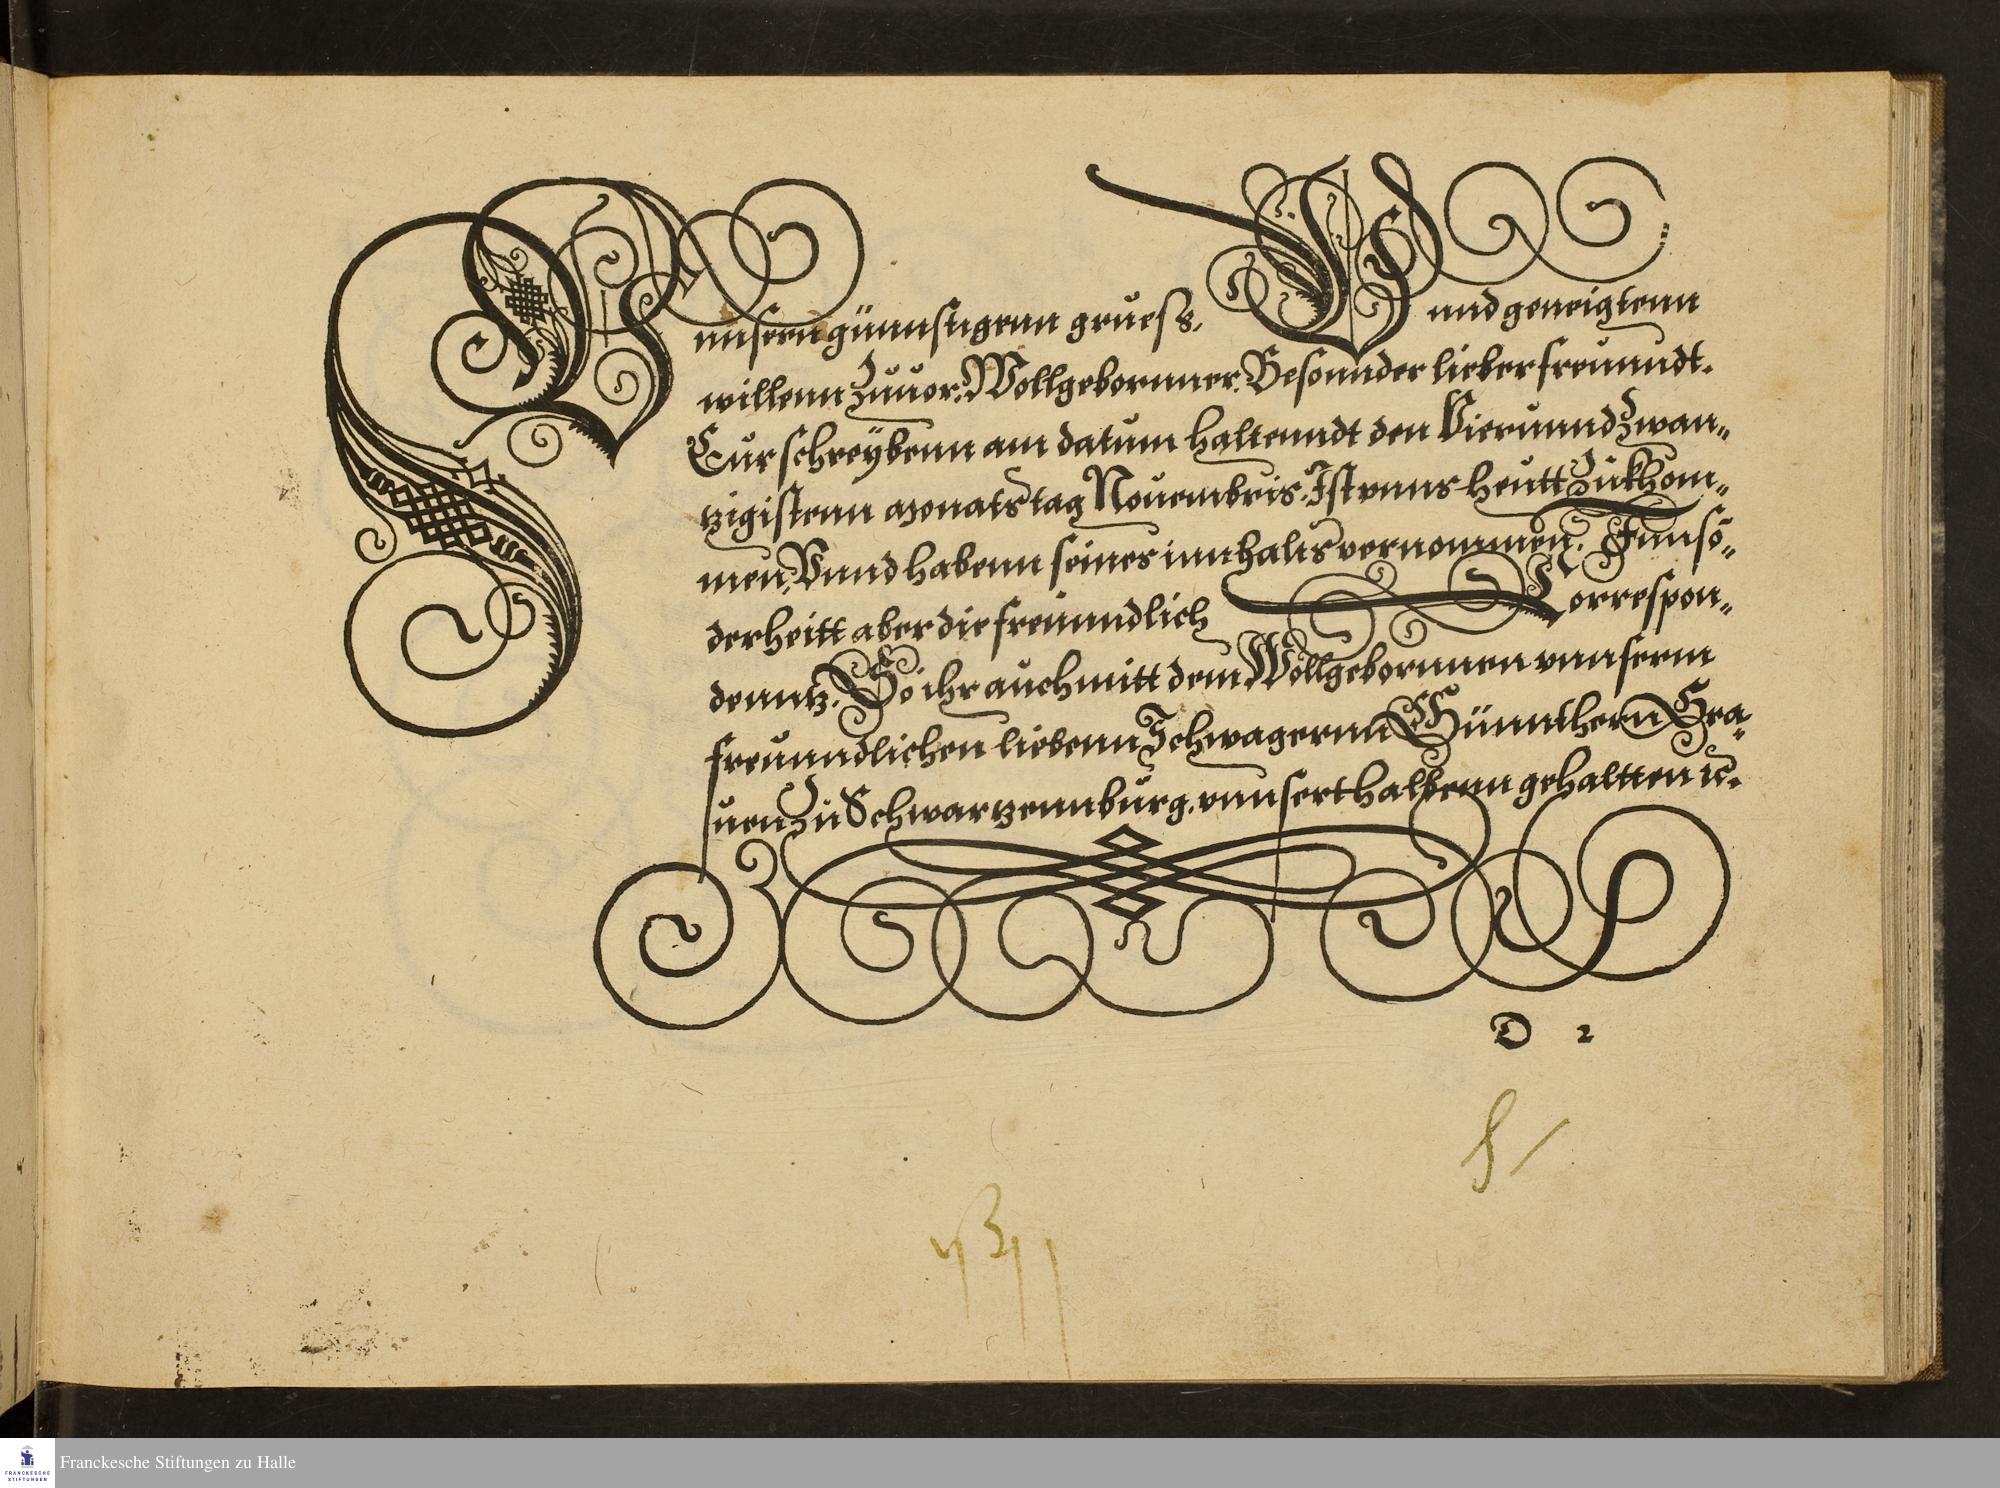 Vnnsern günnstigenn gruess, Vnnd geneigtenn
willenn Zuuor. Wollgebornner, Besonnder lieber freunndt.
Eur schreybenn am datum haltenndt den Vierunnd Zwan„
tzigistenn monats tag Nouembris. Ist vnns heutt Zukhom„
men, Vnnd habenn seines innhalts vernommen. Innso„
derheitt aber die freunndlich Correspon„
denntz. So ihr auch mitt dem Wollgebornnen vnnserm
freunndlichen liebenn Schwagernn Günnthern Gra„
uen Zu Schwartzennburg, vnnserthalbenn gehaltten ꝛc.
D 2
Franckesche Stiftungen zu Halle
FRANCKESCHE
STIFTUNGEN